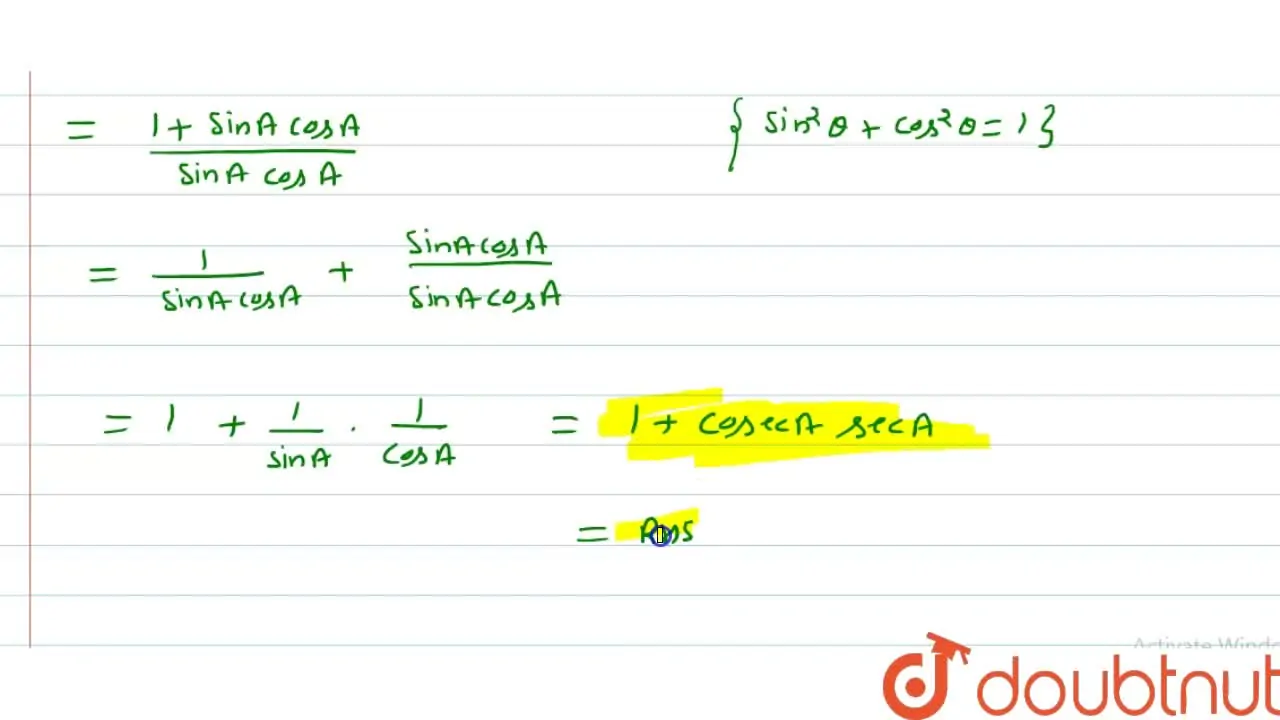 = (1 + sinA cosA) / (sinA cosA) { sin²θ + cos²θ = 1 }
= 1 / (sinA cosA) + (sinA cosA) / (sinA cosA)
= 1 + 1/sinA . 1/cosA = 1 + cosecA secA
= Ans
Activate Windo
doubtnut